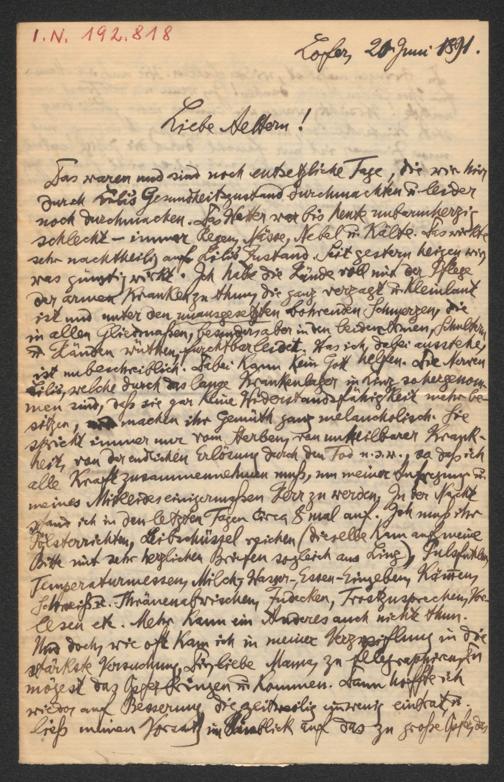 I.N. 192.818
Lofer, 20 Juni 1891.
Liebe Aeltern!
Das waren und sind noch entsetzliche Tage, die wir hier
durch Lilis Gesundheitszustand durchmachten u. leider
noch durchmachen. Das Wetter war bis heute unbarmherzig
schlecht – immer Regen, Nässe, Nebel u. Kälte. Das wirkte
sehr nachtheilig auf Lilis Zustand. Seit gestern heizen wir,
was günstig wirkt. Ich habe die Hände voll mit der Pflege
der armen Kranken zu thun, die ganz verzagt u. kleinlaut
ist und unter den unausgesetzten bohrenden Schmerzen, die
in allen Gliedmaßen, besonders aber in den beiden Armen, Schultern
u. Händen wüthen, furchtbar leidet. Was ich dabei ausstehe,
ist unbeschreiblich. Dabei kann kein Gott helfen. Die Nerven
Lilis, welche durch das lange Krankenlager in hergenom-
men sind, daß sie gar keine Widerstandsfähigkeit mehr be-
sitzen, machen ihr Gemüth ganz melancholisch. Sie
spricht immer nur vom Sterben, von unheilbarer Krank-
heit, von der endlichen Erlösung durch den Tod u.s.w., so daß ich
alle Kraft zusammennehmen muß, um meiner Aufregung u.
meines Mitleides einigermaßen Herr zu werden. In der Nacht
stand ich in den letzten Tagen circa 8 mal auf. Ich muß ihr
Pölster richten, Leibschüssel reichen (dieselbe kam auf meine
Bitte mit sehr herzlichen Briefen sogleich aus Linz), Pulsfühlen,
Temperaturmessen, Milch, Wasser-Essen-Eingeben, Kämmen,
Schweiß- u. Thränenabwischen, Zudecken, Trostzusprechen, Vor-
lesen etc. Mehr kann ein Anderes auch nicht thun.
Und doch, wie oft kam ich in meiner Verzweiflung in die
stärkste Versuchung, Dir, liebe Mama, zu telegraphieren, Du
mögest das Opfer bringen u. kommen. Dann hoffte ich
wieder auf Besserung, die zeitweilig ein wenig eintrat, u.
ließ meinen Vorsatz im Hinblick auf das zu große Opfer, das